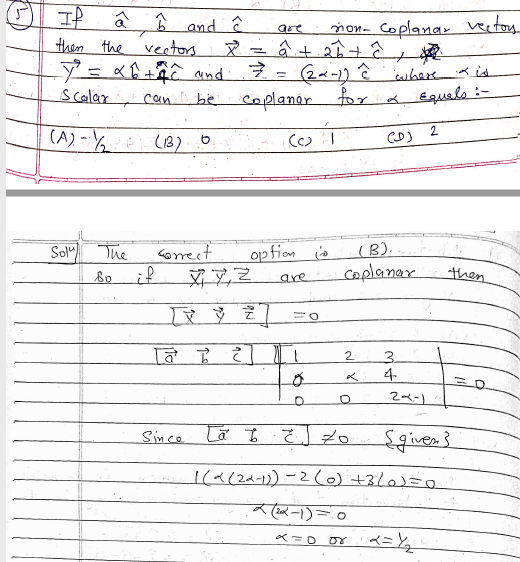 5) If â, b̂ and ĉ are non-coplanar vectors
then the vectors x⃗ = â + 2b̂ + ĉ,
y⃗ = αb̂ + 4ĉ and z⃗ = (2α-1) ĉ where α is
scalar, can be coplanar for α equals :-
(A) -1/2 (B) 0 (C) 1 (D) 2
Solⁿ The correct option is (B).
so if x⃗, y⃗, z⃗ are coplanar then
[x⃗ y⃗ z⃗] = 0
[a⃗ b⃗ c⃗] | 1 2 3 |
| 0 α 4 | = 0
| 0 0 2α-1 |
Since [a⃗ b⃗ c⃗] ≠ 0 {given}
1(α(2α-1)) - 2(0) + 3(0) = 0
α(2α-1) = 0
α = 0 or α = 1/2